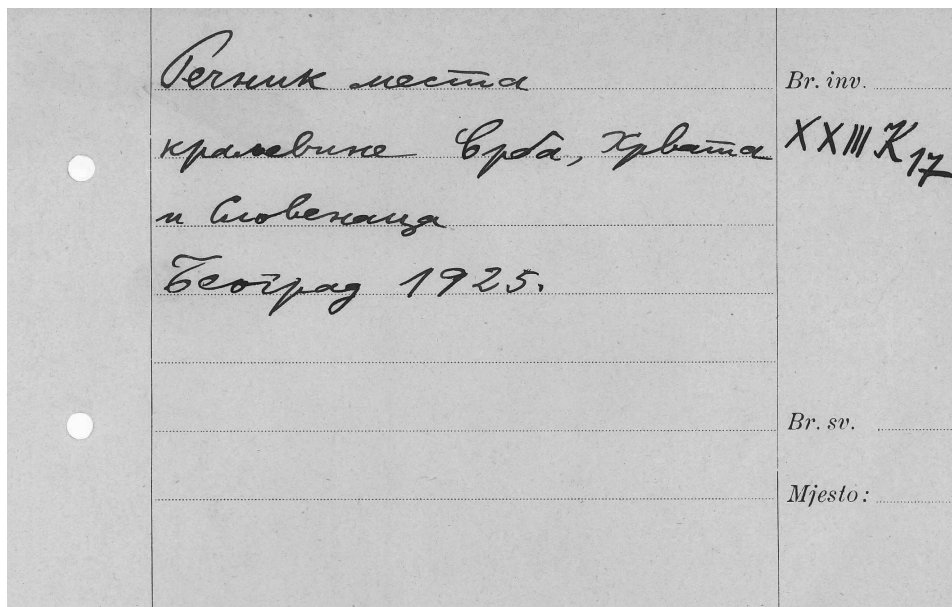 Речник места
краљевине Срба, Хрвата
и Словенаца
Београд 1925.
Br. inv.
XXIII K 17
Br. sv.
Mjesto: